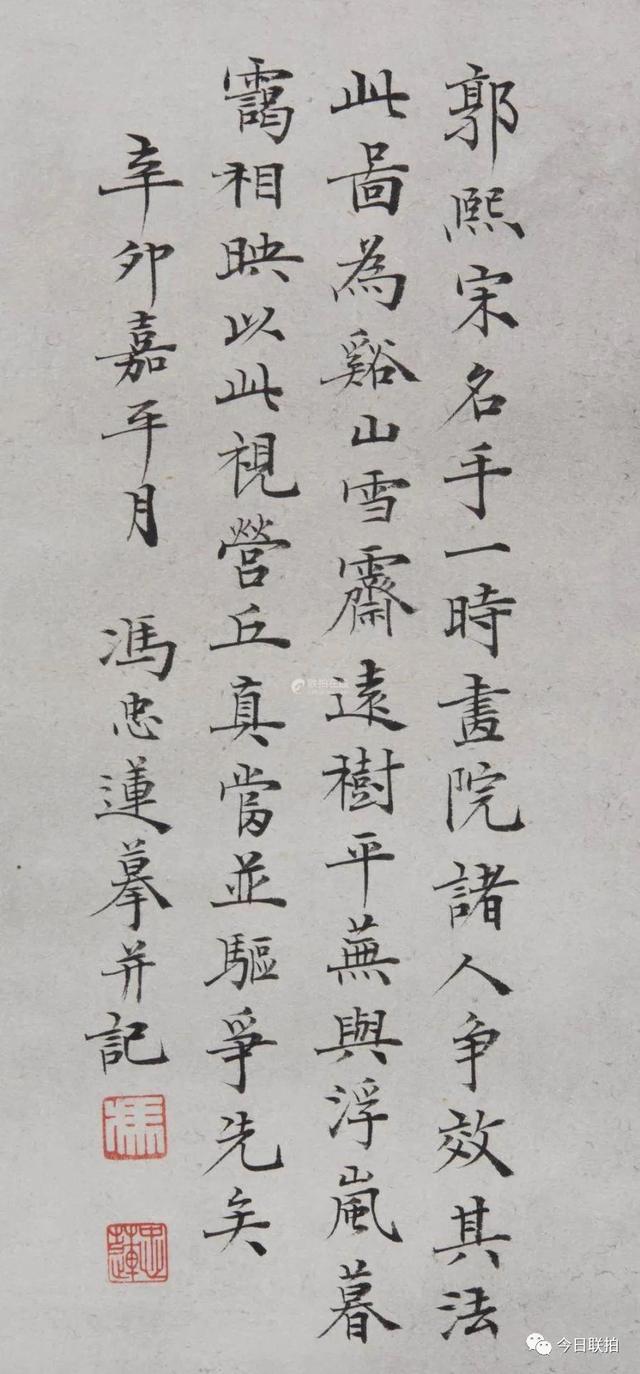 郭熙宋名手一時畫院諸人争效其法
此啚為谿山雪霽遠樹平蕪與浮嵐暮
靄相映以此視營丘真當並驅爭先矣
辛卯嘉平月 馮忠蓮摹并記
馮
忠蓮
联拍在线
今日联拍